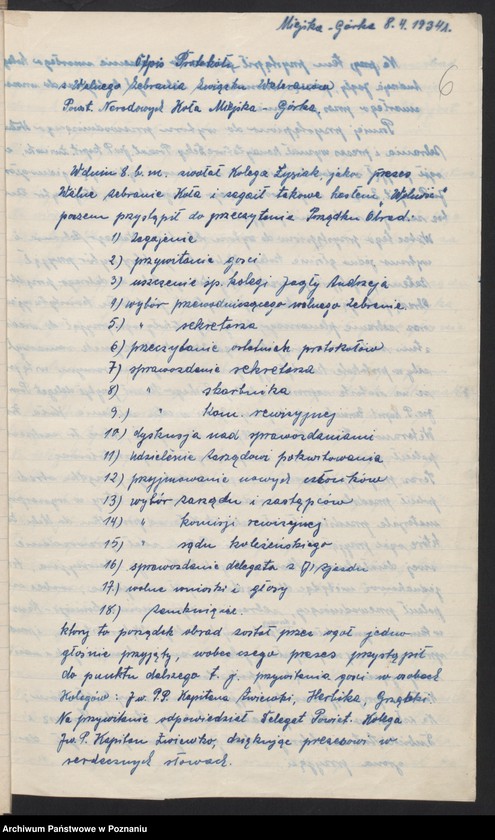 Miejska-Górka 8.4.1934r.
6
Odpis Protokółu
z Walnego Zebrania Związku Weteranów
Powst. Narodowych Koła Miejska Górka.
W dniu 8. b. m. zwołał Kolega Łysiak jako prezes
Walne zebranie Koła i zagaił takowe hasłem "Wolność"
poczem przystąpił do przeczytania Porządku Obrad:
1) Zagajenie
2) przywitanie gości
3) uczczenie śp. kolegi Jagły Andrzeja
4) wybór przewodniczącego walnego zebrania
5.) " sekretarza
6) przeczytanie ostatnich protokołów
7) sprawozdanie sekretarza
8) " skarbnika
9.) " kom. rewizyjnej
10.) dyskusja nad sprawozdaniami
11) udzielenie zarządowi pokwitowania
12) przyjmowanie nowych członków
13) wybór zarządu i zastępców
14) " komisji rewizyjnej
15) " sądu koleżeńskiego
16) sprawozdanie delegata z zjazdu
17.) wolne wnioski i głosy
18.) zamknięcie.
który to porządek obrad został przez ogół jedno
głośnie przyjęty, wobec czego prezes przystąpił
do punktu dalszego t. j. przywitania gości w osobach
Kolegów: Jw. P.P. Kapitana Żwiewki, Herlika, Grąbki
Na przywitanie odpowiedział Delegat Powiat. Kolega
Jw. P. Kapitan Żwiewko, dziękując prezesowi w
serdecznych słowach.
Archiwum Państwowe w Poznaniu